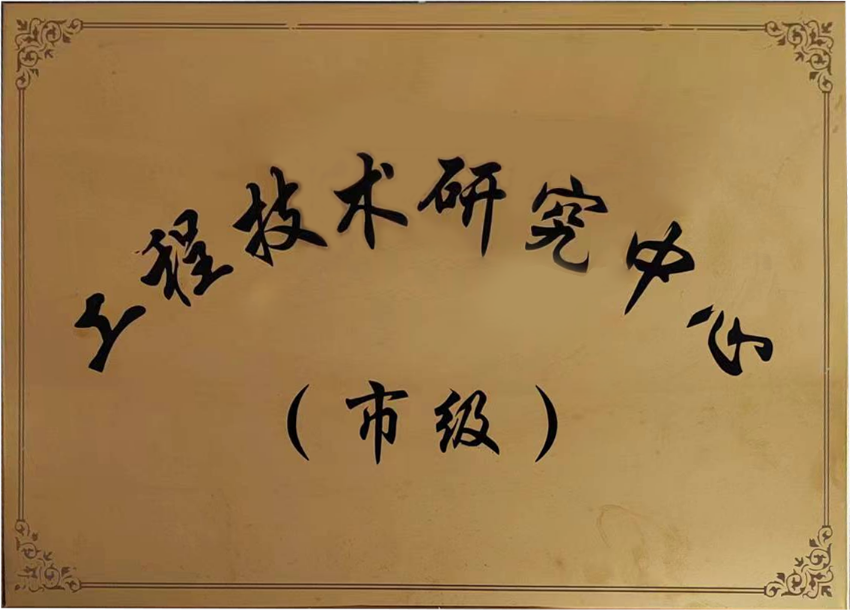 工程技术研究中心
（市级）